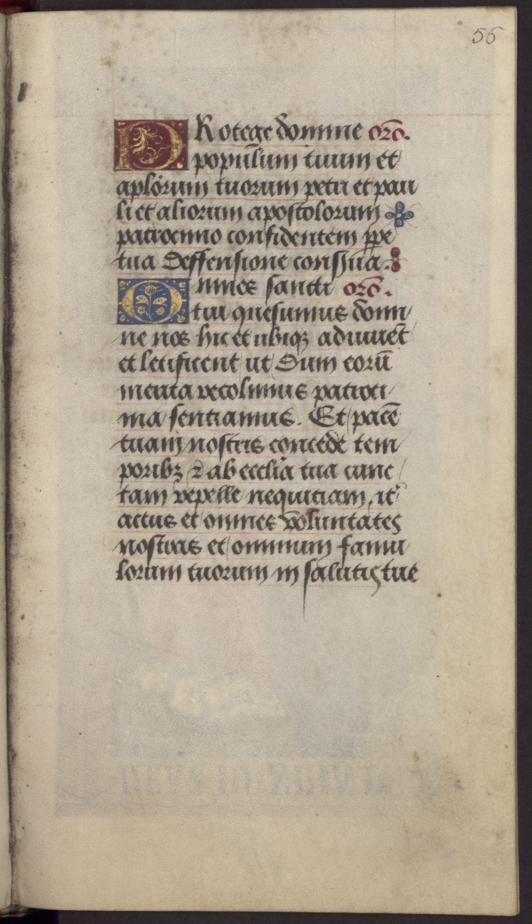 56
PRotege domine orō.
populum tuum et
aplōrum tuorum petri et pau
li et aliorum apostolorum
patrocinio confidentem ppe
tua deffensione conserua.
Omnes sancti orō.
tui quesumus domi
ne nos hic et ubiqz adiuuēt
et letificent ut dum eorū
merita recolimus patroci
nia sentiamus. Et pacē
tuam nostris concede tem
poribz ⁊ ab ecclia tua cunc
tam repelle nequitiam, it̄
actus et omnes voluntates
nostras et omnium famu
lorum tuorum in salutis tue